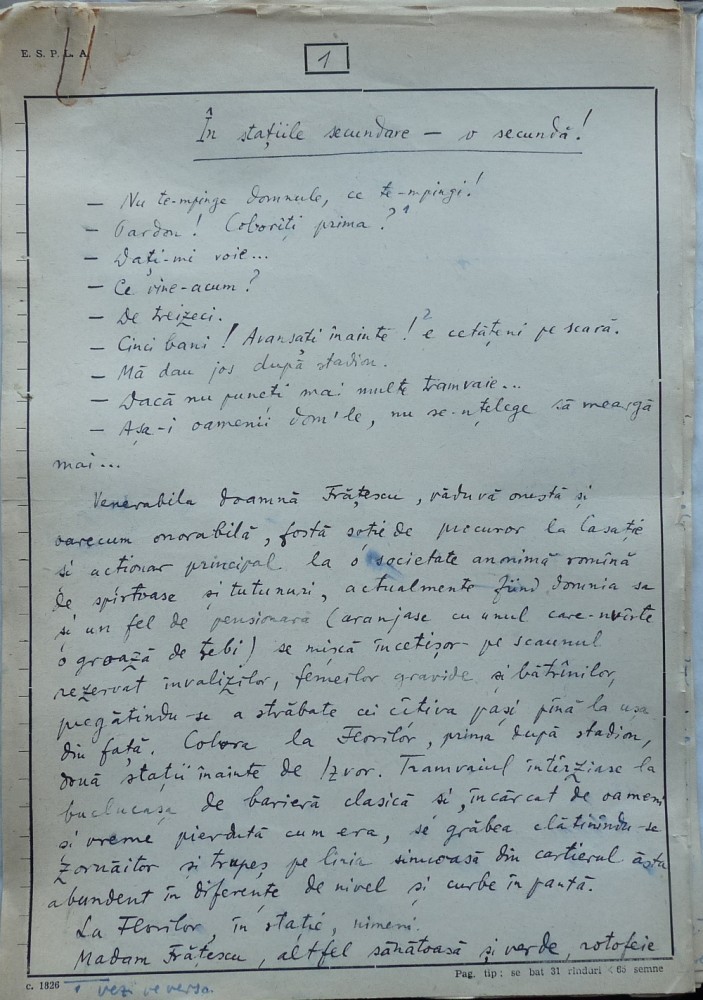 E. S. P. L. A.
1
În stațiile secundare — o secundă!
— Nu te-mpinge domnule, ce te-mpingi!
— Pardon! Coborîți prima?¹
— Dați-mi voie...
— Ce vine-acum?
— De treizeci.
— Cinci bani! Avansați înainte!² e cetățeni pe scară.
— Mă dau jos după stadion.
— Dacă nu puneți mai multe tramvaie...
— Așa-i oamenii dom'le, nu se-nțelege să meargă
mai...
Venerabila doamnă Frățescu, văduvă onestă și
oarecum onorabilă, fostă soție de procuror la Casație
și acționar principal la o societate anonimă romînă
de spirtoase și tutunuri, actualmente fiind domnia sa
și un fel de pensionară (aranjase cu unul care-nvîrte
o groază de ) se mișcă încetișor pe scaunul
rezervat invalizilor, femeilor gravide și bătrînilor,
pregătindu-se a străbate cei cîtiva pași pînă la ușa
din față. Cobora la Florilor, prima după stadion,
două stații înainte de Izvor. Tramvaiul întîrziase la
buclucașa de barieră clasică și, încărcat de oameni
și vreme pierdută cum era, se grăbea clătinîndu-se
zornăitor și trupeș pe linia sinuoasă din cartierul ăsta
abundent în diferențe de nivel și curbe în pantă.
La Florilor, în stație, nimeni.
Madam Frățescu, altfel sănătoasă și verde, rotofeie
c. 1826
1 vezi reversa.
Pag. tip: se bat 31 rînduri × 65 semne